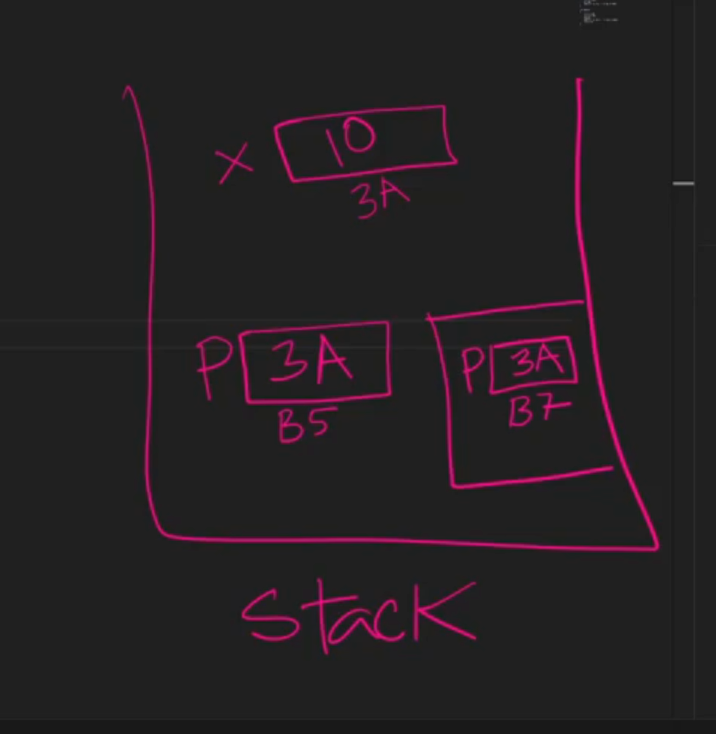 x 10
3A
P 3A P 3A
B5 B7
Stack